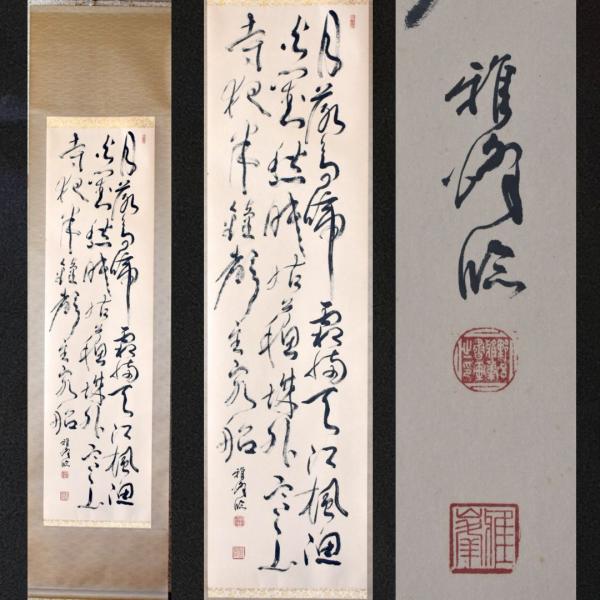 月落烏啼霜満天江楓漁
火對愁眠姑蘇城外寒山
寺夜半鐘聲到客船
雅峰臨
月落烏啼霜満天江楓漁
火對愁眠姑蘇城外寒山
寺夜半鐘聲到客船
雅峰臨
雅峰臨
雅峯